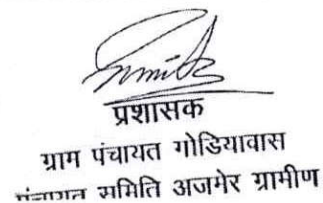 प्रशासक
ग्राम पंचायत गोडियावास
पंचायत समिति अजमेर ग्रामीण